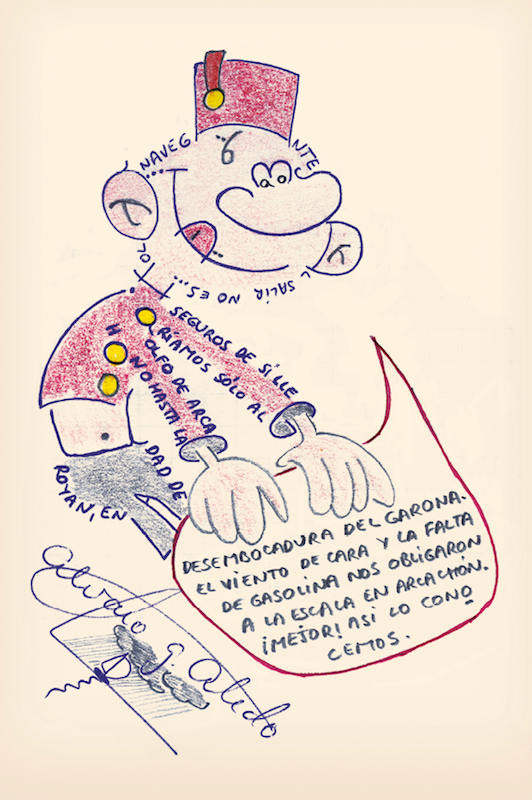 ...NAVEG
NTE
OL
L SALIR NO ES...
SEGUROS DE SI LLE
RÍAMOS SÓLO AL
OLFO DE ARCA
H
NO HASTA LA
DAD DE
ROYAN, EN
DESEMBOCADURA DEL GARONA.
EL VIENTO DE CARA Y LA FALTA
DE GASOLINA NOS OBLIGARON
A LA ESCALA EN ARCACHÓN.
¡MEJOR! ASÍ LO CONO
CEMOS.
Alvaro G. Aledo